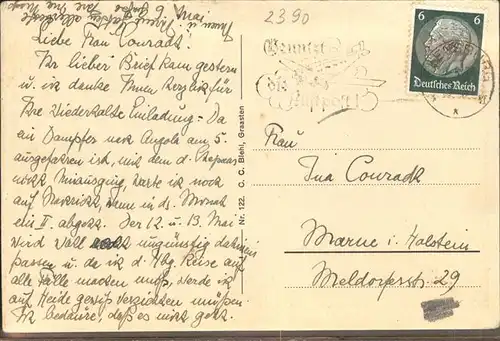 2390
6 6
Deutsches Reich
Benutzt
Luftpost!
9. Mai
Liebe Frau Conradt!
Ihr lieber Brief kam gestern
u. ich danke Ihnen herzlich für
Ihre wiederholte Einladung. Da
ein Dampfer nach Angola am 5.
ausgefahren ist, mit dem d.
nicht mitausging, warte ich noch
auf Nachricht, wenn in ds. Monat
ein II. abgeht. Der 12. u. 13. Mai
wird wohl ungünstig dahin
passen u. da ich d. Hbg. Reise auf
alle Fälle machen muß, werde ich
auf Heide gewiß verzichten müssen.
Ich bedaure, daß es nicht geht.
Nr. 122. C. C. Biehl, Graasten
Frau
Ina Conradt
Marne i. Holstein
Meldorferstr. 29